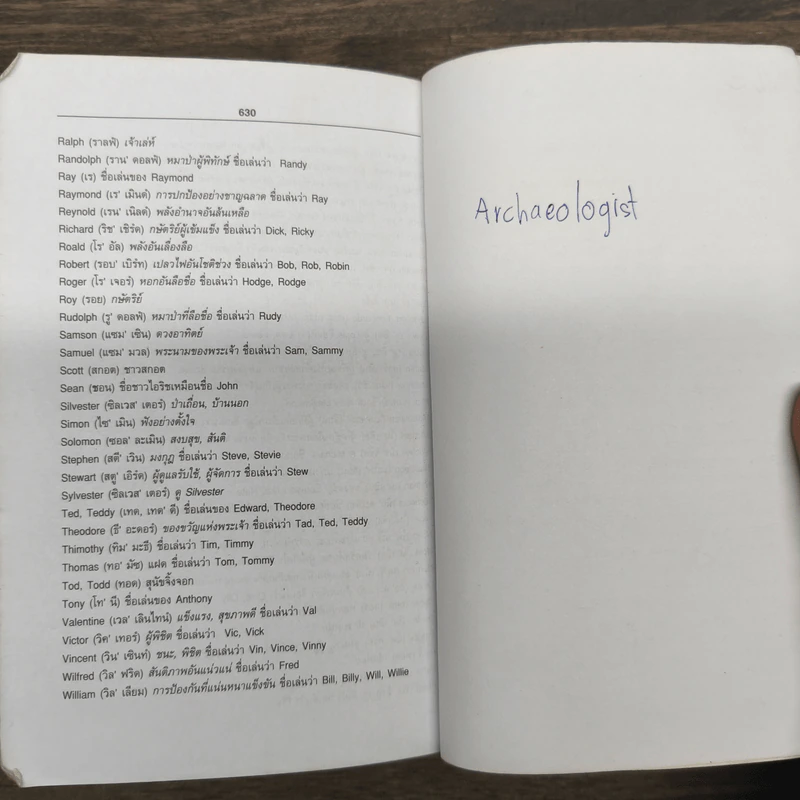 630
Ralph (ราลฟ์) เจ้าเล่ห์
Randolph (ราน' ดอลฟ์) หมาป่าผู้พิทักษ์ ชื่อเล่นว่า Randy
Ray (เร) ชื่อเล่นของ Raymond
Raymond (เร' เมินด์) การปกป้องอย่างชาญฉลาด ชื่อเล่นว่า Ray
Reynold (เรน' เนิลด์) พลังอำนาจอันล้นเหลือ
Richard (ริช' เชิร์ด) กษัตริย์ผู้เข้มแข็ง ชื่อเล่นว่า Dick, Ricky
Roald (โร' อัล) พลังอันเลื่องลือ
Robert (รอบ' เบิร์ท) เปลวไฟอันโชติช่วง ชื่อเล่นว่า Bob, Rob, Robin
Roger (โร' เจอร์) หอกอันลือชื่อ ชื่อเล่นว่า Hodge, Rodge
Roy (รอย) กษัตริย์
Rudolph (รู' ดอลฟ์) หมาป่าที่ลือชื่อ ชื่อเล่นว่า Rudy
Samson (แซม' เซิน) ดวงอาทิตย์
Samuel (แซม' มวล) พระนามของพระเจ้า ชื่อเล่นว่า Sam, Sammy
Scott (สกอต) ชาวสกอต
Sean (ชอน) ชื่อชาวไอริชเหมือนชื่อ John
Silvester (ซิลเวส' เตอร์) ป่าเถื่อน, บ้านนอก
Simon (ไซ' เมิน) ฟังอย่างตั้งใจ
Solomon (ซอล' ละเมิน) สงบสุข, สันติ
Stephen (สตี' เวิน) มงกุฎ ชื่อเล่นว่า Steve, Stevie
Stewart (สตู' เอิร์ต) ผู้ดูแลรับใช้, ผู้จัดการ ชื่อเล่นว่า Stew
Sylvester (ซิลเวส' เตอร์) ดู Silvester
Ted, Teddy (เทด, เทด' ดี) ชื่อเล่นของ Edward, Theodore
Theodore (ธี' อะดอร์) ของขวัญแห่งพระเจ้า ชื่อเล่นว่า Tad, Ted, Teddy
Thimothy (ทิม' มะธี) ชื่อเล่นว่า Tim, Timmy
Thomas (ทอ' มัซ) แฝด ชื่อเล่นว่า Tom, Tommy
Tod, Todd (ทอด) สุนัขจิ้งจอก
Tony (โท' นี) ชื่อเล่นของ Anthony
Valentine (เวล' เลินไทน์) แข็งแรง, สุขภาพดี ชื่อเล่นว่า Val
Victor (วิค' เทอร์) ผู้พิชิต ชื่อเล่นว่า Vic, Vick
Vincent (วิน' เซินท์) ชนะ, พิชิต ชื่อเล่นว่า Vin, Vince, Vinny
Wilfred (วิล' ฟริด) สันติภาพอันแน่วแน่ ชื่อเล่นว่า Fred
William (วิล' เลียม) การป้องกันที่แน่นหนาแข็งขัน ชื่อเล่นว่า Bill, Billy, Will, Willie
Archaeologist